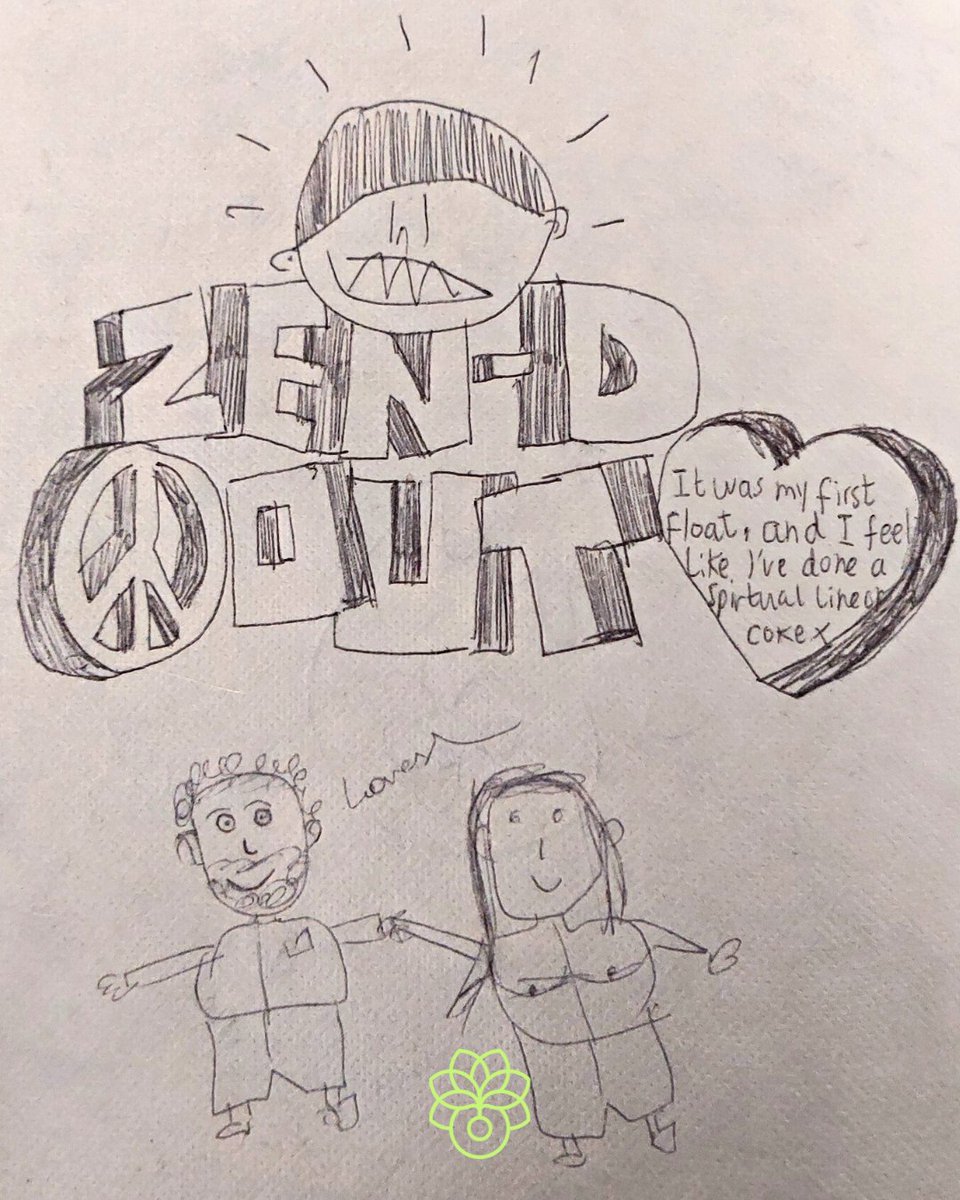 ZEN-D
OUT
It was my first
float, and I feel
Like I've done a
Spirtual Line of
coke x
Loves